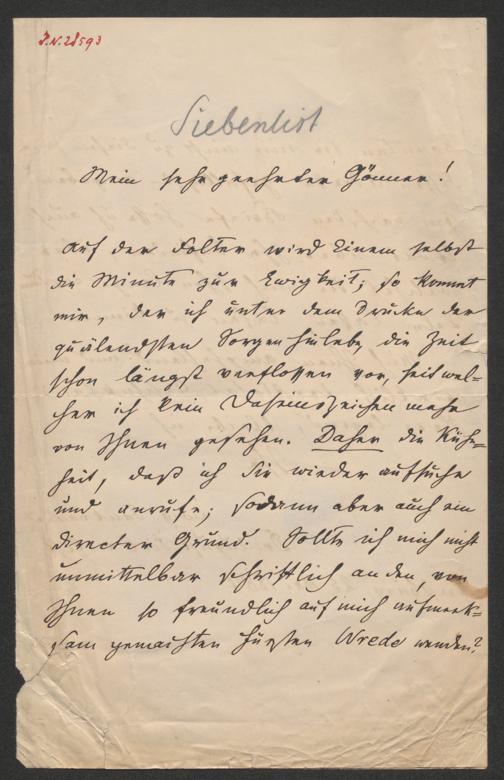 J.N. 28593
Siebenlist
Mein sehr geehrter Gönner!
Auf der Folter wird Einem selbst
die Minute zur Ewigkeit; so kommt
mir, der ich unter dem Drucke der
quälendsten Sorgen hinlebe, die Zeit
schon längst verflossen vor, seit wel=
cher ich kein Daseinszeichen mehr
von Ihnen gesehen. Daher die Küh=
heit, daß ich Sie wieder aufsuche
und anrufe; sodann aber auch ein
directer Grund. Sollte ich mich nicht
unmittelbar schriftlich an den, von
Ihnen so freundlich auf mich aufmerk=
sam gemachten Fürsten Wrede wenden?